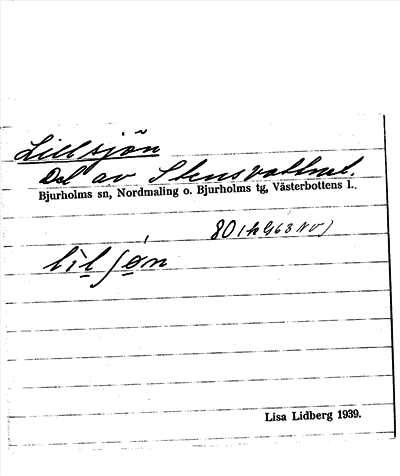 Lillsjön
Del av Stensvattnet.
Bjurholms sn, Nordmaling o. Bjurholms tg, Västerbottens l.
lìlʃǿn
Lisa Lidberg 1939.